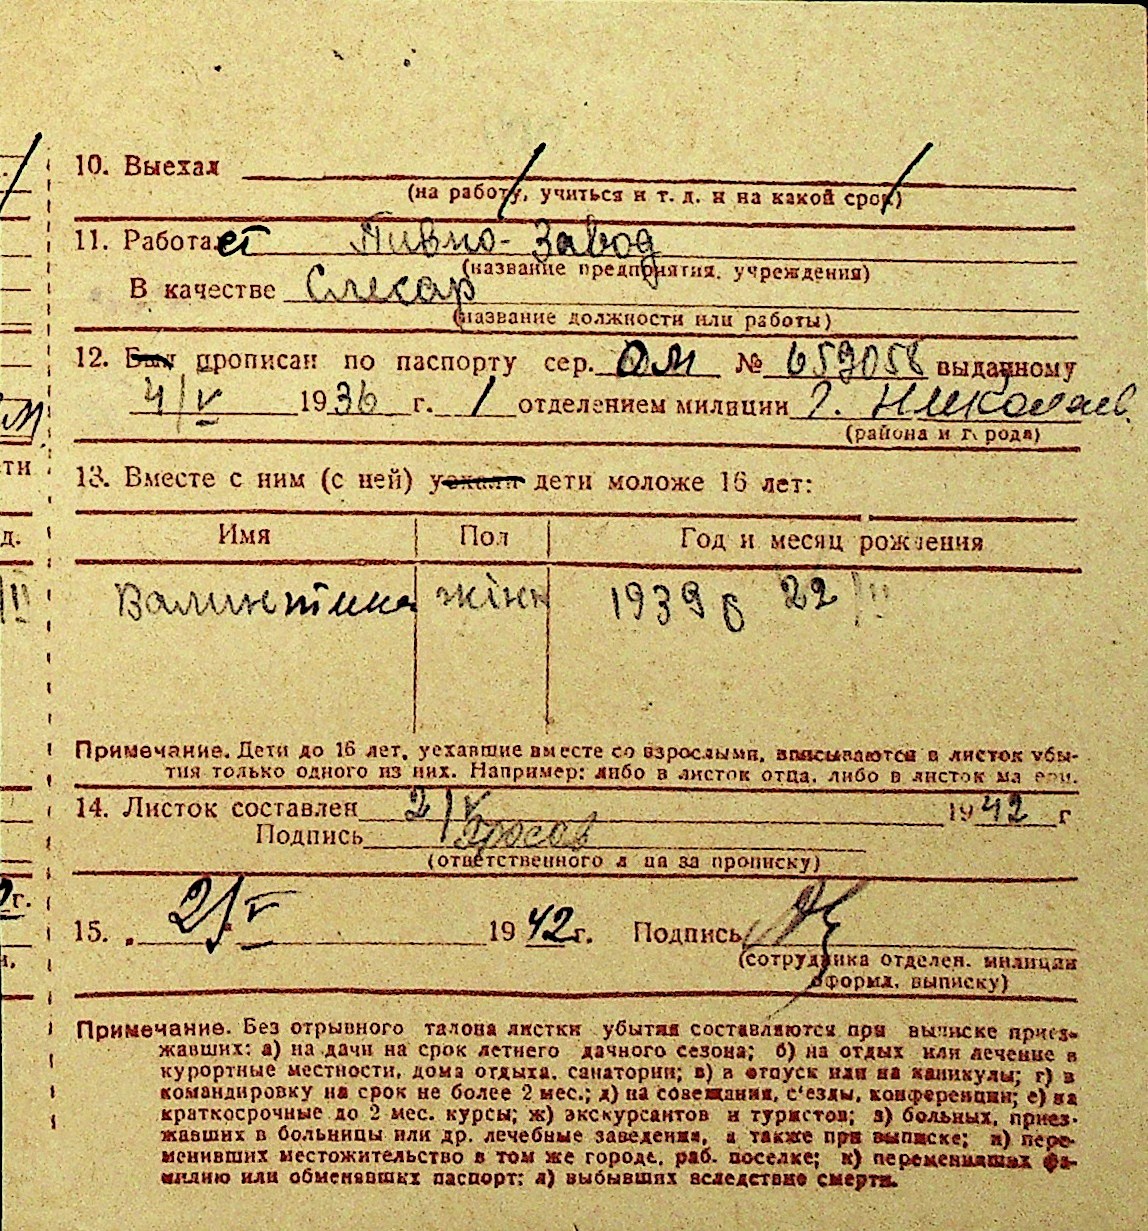 10. Выехал
(на работу, учиться и т. д. и на какой срок)
11. Работает Пивно-Завод
(название предприятия, учреждения)
В качестве Слесар
(название должности или работы)
12. Был прописан по паспорту сер. ОМ № 659058 выданному
4/V 1936 г. 1 отделением милиции г. Николаев
(района и города)
13. Вместе с ним (с ней) уехали дети моложе 16 лет:
Имя Пол Год и месяц рождения
Валинтина жінк 1939 р 22/II
Примечание. Дети до 16 лет, уехавшие вместе со взрослыми, вписываются в листок убы-
тия только одного из них. Например: либо в листок отца, либо в листок матери.
14. Листок составлен 2/V 1942 г
Подпись
(ответственного лица за прописку)
15. 2/V 1942 г. Подпись
(сотрудника отделен. милиции
оформл. выписку)
Примечание. Без отрывного талона листки убытия составляются при выписке приез-
жавших: а) на дачи на срок летнего дачного сезона; б) на отдых или лечение в
курортные местности, дома отдыха, санатории; в) в отпуск или на каникулы; г) в
командировку на срок не более 2 мес.; д) на совещания, с'езды, конференции; е) на
краткосрочные до 2 мес. курсы; ж) экскурсантов и туристов; з) больных, приез-
жавших в больницы или др. лечебные заведения, а также при выписке; и) пере-
менивших местожительство в том же городе, раб. поселке; к) переменивших фа-
милию или обменявших паспорт; л) выбывших вследствие смерти.